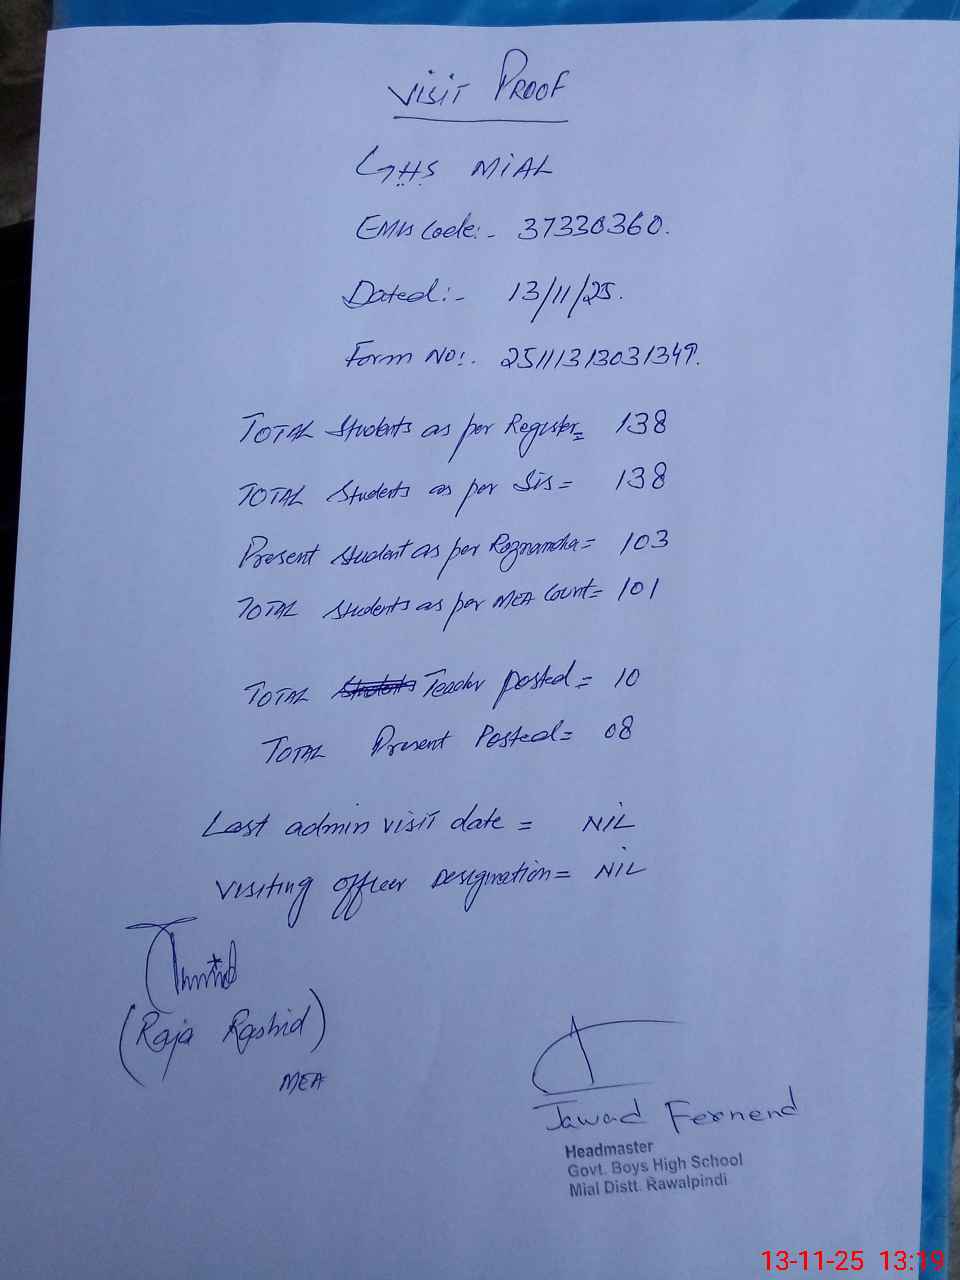 VISIT PROOF
GHS MIAL
EMIS Code:- 37330360.
Dated:- 13/11/25.
Form No:. 2511313031349.
TOTAL Students as per Register= 138
TOTAL Students as per Sis= 138
Present student as per Roznamcha= 103
TOTAL Students as per MEA Count= 101
TOTAL Teacher posted= 10
TOTAL Present Posted= 08
Last admin visit date = NIL
Visiting officer Designation= NIL
(Raja Rashid)
MEA
Jawad Fernend
Headmaster
Govt. Boys High School
Mial Distt. Rawalpindi
13-11-25 13:19